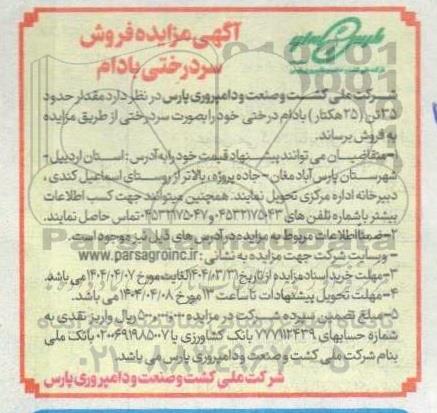 آگهی مزایده فروش
سردرختی بادام
شرکت ملی کشت و صنعت و دامپروری پارس در نظر دارد مقدار حدود
۳۵تن (۲۵ هکتار) بادام درختی خود را بصورت سردرختی از طریق مزایده
به فروش برساند.
۱-متقاضیان می توانند پیشنهاد قیمت خود را به آدرس: استان اردبیل-
شهرستان پارس آباد مغان-جاده پروژه، بالاتر از روستای اسماعیل کندی،
دبیرخانه اداره مرکزی تحویل نمایند. همچنین میتوانند جهت کسب اطلاعات
بیشتر با شماره تلفن های ۰۴۵۳۲۱۷۵۰۴۳-۰۴۵۳۲۱۷۵۰۴۷ تماس حاصل نمایند.
۲-ضمناً اطلاعات مربوط به مزایده در آدرس های ذیل نیز موجود است.
- وبسایت شرکت جهت مزایده به نشانی: www.parsagroinc.ir
۳-مهلت خرید اسناد مزایده از تاریخ ۱۴۰۴/۰۳/۳۱ لغایت مورخ ۱۴۰۴/۰۴/۰۷ می باشد.
۴-مهلت تحویل پیشنهادات تا ساعت ۱۳ مورخ ۱۴۰۴/۰۴/۰۸ می باشد.
۵-مبلغ تضمین سپرده شرکت در مزایده ریال واریز نقدی به
شماره حسابهای ۷۷۷۱۱۲۴۳۹ بانک کشاورزی یا ۰۲۰۰۶۹۱۹۸۵۰۰۷ بانک ملی
بنام شرکت ملی کشت و صنعت و دامپروری پارس می باشد.
شرکت ملی کشت و صنعت و دامپروری پارس